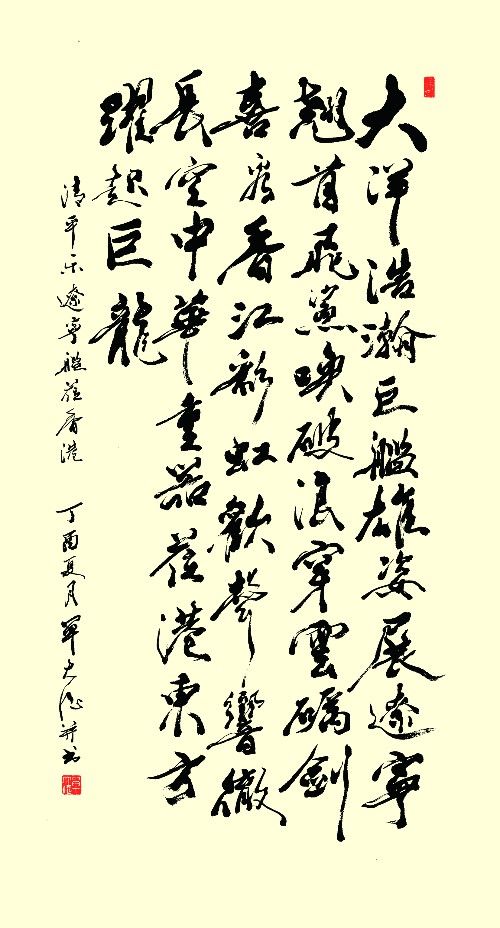 大洋浩瀚巨艦雄姿展遼寧
翹首飛鯊喚破浪穿雲礪劍
喜看香江彩虹歡聲響徹
長空中華重器莅港東方
躍起巨龍
清平乐遼寧艦莅香港 丁酉夏月